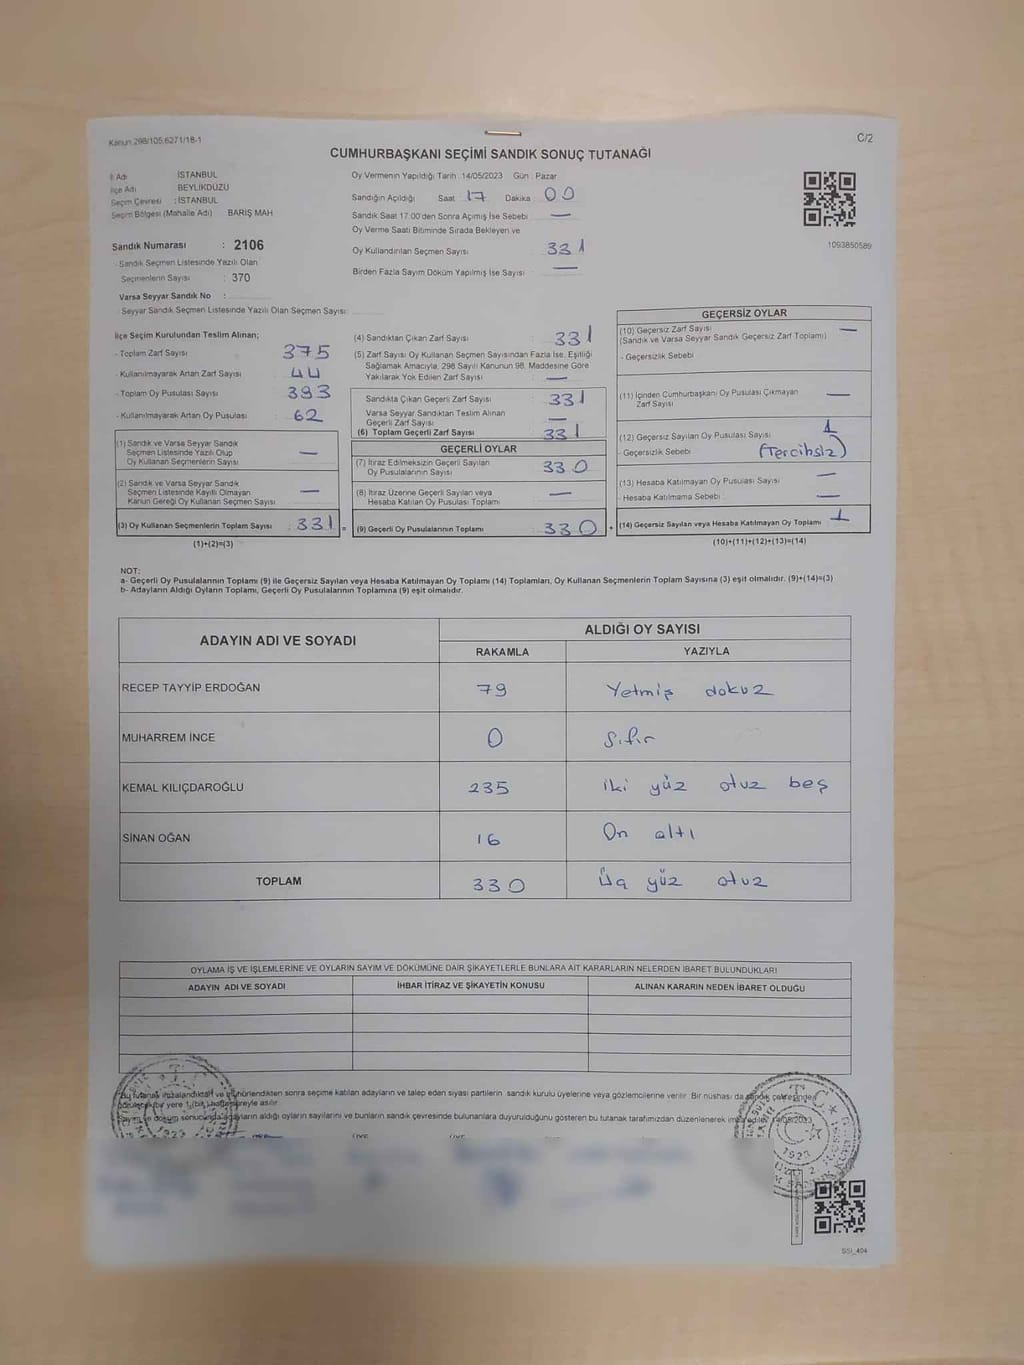 Kanun 298/105,6271/18-1
C/2
CUMHURBAŞKANI SEÇİMİ SANDIK SONUÇ TUTANAĞI
İl Adı : İSTANBUL
İlçe Adı : BEYLİKDÜZÜ
Seçim Çevresi : İSTANBUL
Seçim Bölgesi (Mahalle Adı) BARIŞ MAH
Sandık Numarası : 2106
- Sandık Seçmen Listesinde Yazılı Olan
Seçmenlerin Sayısı : 370
Varsa Seyyar Sandık No :
- Seyyar Sandık Seçmen Listesinde Yazılı Olan Seçmen Sayısı:
Oy Vermenin Yapıldığı Tarih :14/05/2023 Gün : Pazar
Sandığın Açıldığı Saat 17 Dakika : 00
Sandık Saat 17.00'den Sonra Açımış İse Sebebi : —
Oy Verme Saati Bitiminde Sırada Bekleyen ve
Oy Kullandırılan Seçmen Sayısı : 331
Birden Fazla Sayım Döküm Yapılmış İse Sayısı : —
1093850589
İlçe Seçim Kurulundan Teslim Alınan;
- Toplam Zarf Sayısı : 375
- Kullanılmayarak Artan Zarf Sayısı : 44
- Toplam Oy Pusulası Sayısı : 393
- Kullanılmayarak Artan Oy Pusulası : 62
(1) Sandık ve Varsa Seyyar Sandık
Seçmen Listesinde Yazılı Olup
Oy Kullanan Seçmenlerin Sayısı : —
(2) Sandık ve Varsa Seyyar Sandık
Seçmen Listesinde Kayıtlı Olmayan
Kanun Gereği Oy Kullanan Seçmen Sayısı : —
(3) Oy Kullanan Seçmenlerin Toplam Sayısı : 331 =
(1)+(2)=(3)
(4) Sandıktan Çıkan Zarf Sayısı : 331
(5) Zarf Sayısı Oy Kullanan Seçmen Sayısından Fazla İse, Eşitliği
Sağlamak Amacıyla, 298 Sayılı Kanunun 98. Maddesine Göre
Yakılarak Yok Edilen Zarf Sayısı : —
Sandıkta Çıkan Geçerli Zarf Sayısı : 331
Varsa Seyyar Sandıktan Teslim Alınan
Geçerli Zarf Sayısı : —
(6) Toplam Geçerli Zarf Sayısı : 331
GEÇERLİ OYLAR
(7) İtiraz Edilmeksizin Geçerli Sayılan
Oy Pusulalarının Sayısı : 330
(8) İtiraz Üzerine Geçerli Sayılan veya
Hesaba Katılan Oy Pusulası Toplamı : —
(9) Geçerli Oy Pusulalarının Toplamı : 330 +
GEÇERSİZ OYLAR
(10) Geçersiz Zarf Sayısı : —
(Sandık ve Varsa Seyyar Sandık Geçersiz Zarf Toplamı)
- Geçersizlik Sebebi :
(11) İçinden Cumhurbaşkanı Oy Pusulası Çıkmayan
Zarf Sayısı : —
(12) Geçersiz Sayılan Oy Pusulası Sayısı : 1
- Geçersizlik Sebebi : (Tercihsiz)
(13) Hesaba Katılmayan Oy Pusulası Sayısı : —
- Hesaba Katılmama Sebebi : —
(14) Geçersiz Sayılan veya Hesaba Katılmayan Oy Toplamı : 1
(10)+(11)+(12)+(13)=(14)
NOT:
a- Geçerli Oy Pusulalarının Toplamı (9) ile Geçersiz Sayılan veya Hesaba Katılmayan Oy Toplamı (14) Toplamları, Oy Kullanan Seçmenlerin Toplam Sayısına (3) eşit olmalıdır. (9)+(14)=(3)
b- Adayların Aldığı Oyların Toplamı, Geçerli Oy Pusulalarının Toplamına (9) eşit olmalıdır.
ADAYIN ADI VE SOYADI ALDIĞI OY SAYISI
RAKAMLA YAZIYLA
RECEP TAYYİP ERDOĞAN 79 Yetmiş dokuz
MUHARREM İNCE 0 Sıfır
KEMAL KILIÇDAROĞLU 235 iki yüz otuz beş
SİNAN OĞAN 16 On altı
TOPLAM 330 Üç yüz otuz
OYLAMA İŞ VE İŞLEMLERİNE VE OYLARIN SAYIM VE DÖKÜMÜNE DAİR ŞİKAYETLERLE BUNLARA AİT KARARLARIN NELERDEN İBARET BULUNDUKLARI
ADAYIN ADI VE SOYADI İHBAR İTİRAZ VE ŞİKAYETİN KONUSU ALINAN KARARIN NEDEN İBARET OLDUĞU
Bu tutanak imzalandıktan ve mühürlendikten sonra seçime katılan adayların ve talep eden siyasi partilerin sandık kurulu üyelerine veya gözlemcilerine verilir. Bir nüshası da sandık çevresinde
görülecek bir yere 1 (bir) hafta süreyle asılır.
Sayım ve döküm sonucunda adayların aldığı oyların sayılarını ve bunların sandık çevresinde bulunanlara duyurulduğunu gösteren bu tutanak tarafımızdan düzenlenerek imza edildi. 14/05/2023
1923
T C
1923
SSI_404